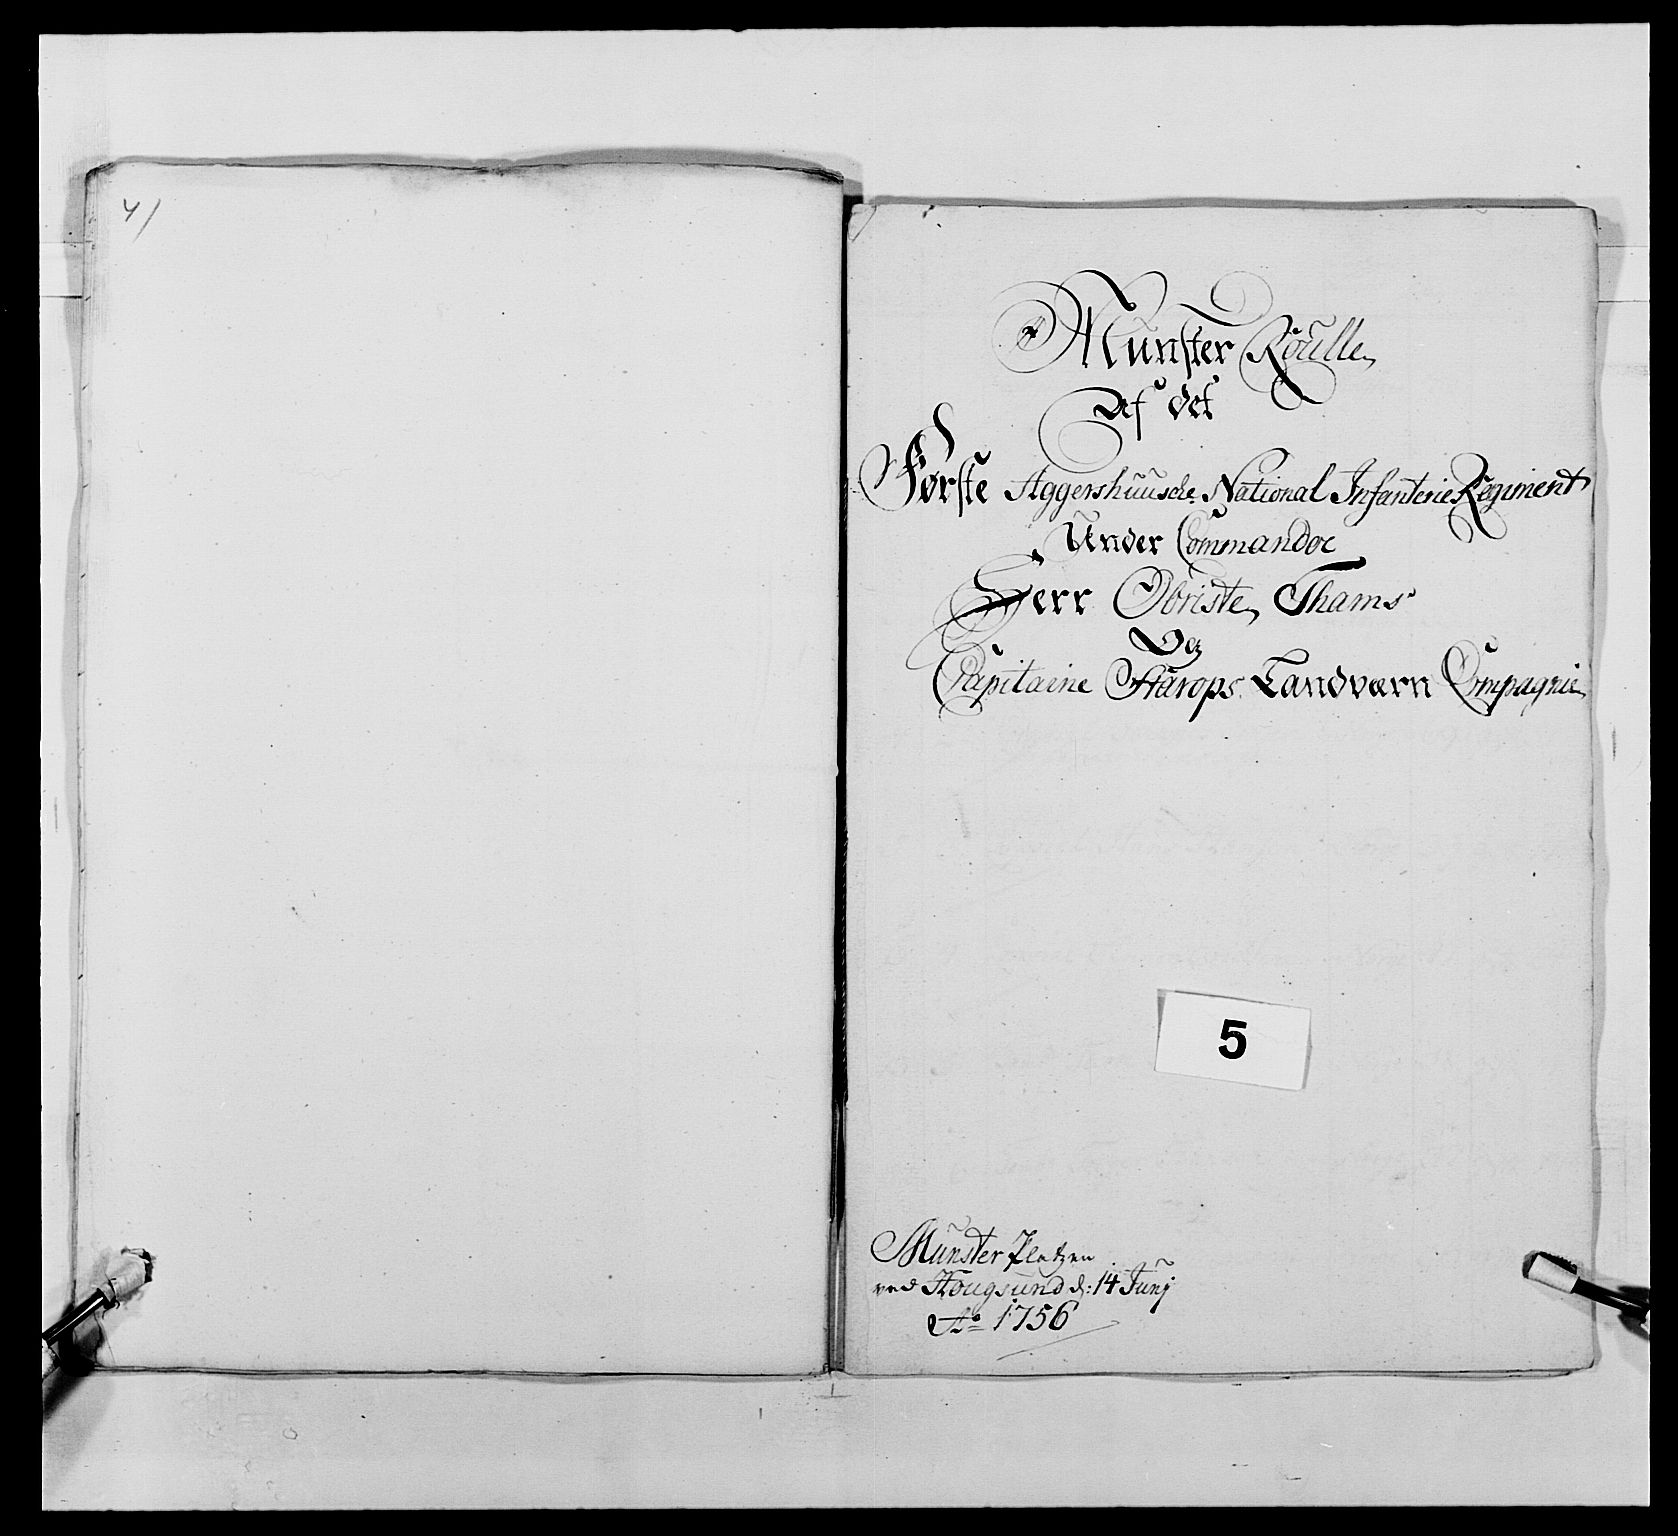 4/
Munster Roulle
Af det
Første Aggershuusche National Infanterie Regiment
Under Commando
Herr Obriste Thams
Og
Capitaine Starops Landværn Compagnie
5
Munster Platzen
ved Hougsund d: 14 Junj
Ao 1756